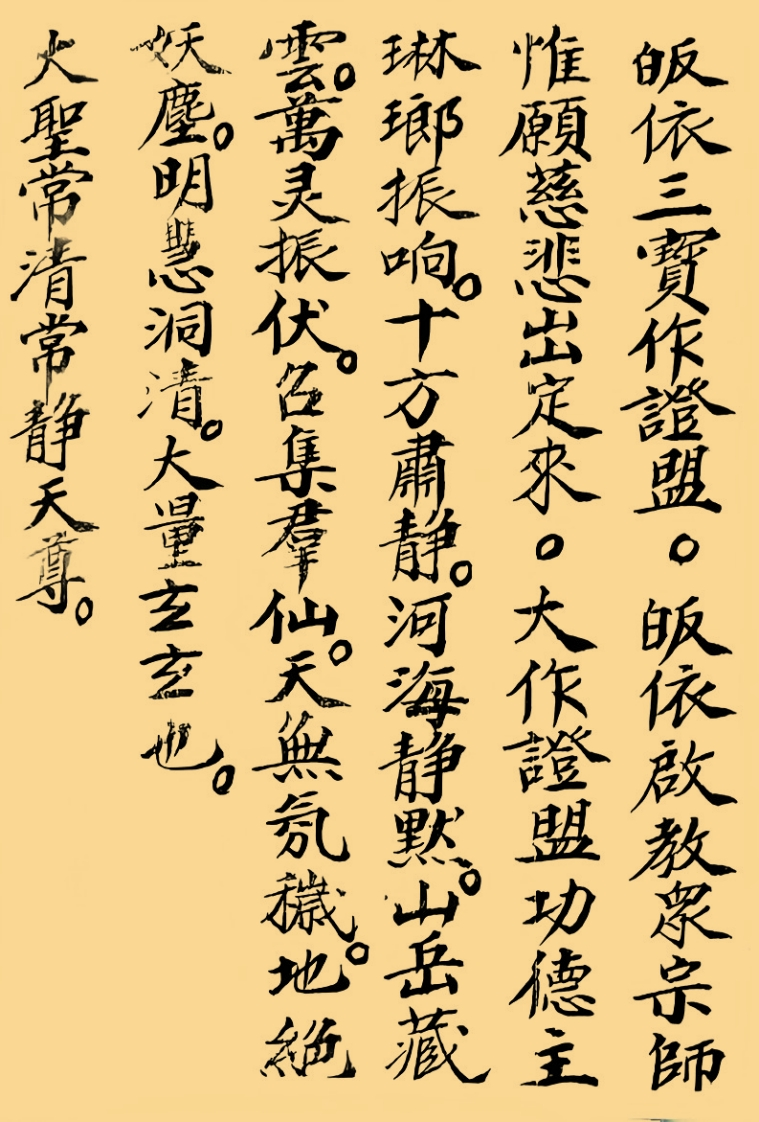 皈依三寶作證盟。皈依啟教衆宗師
惟願慈悲出定來。大作證盟功德主
琳瑯振响。十方肅静。河海静默。山岳藏
雲。萬灵振伏。召集羣仙。天無氛穢。地絶
妖塵。明慧洞清。大量玄玄也。
大聖常清常静天尊。